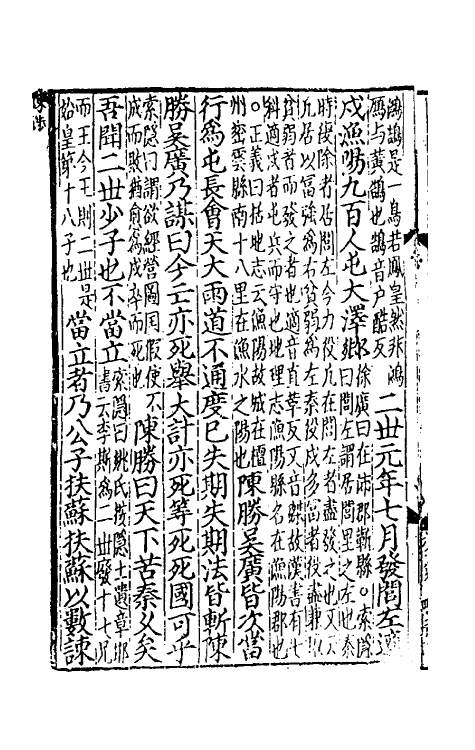 鴻鵠是一鳥若鳳皇然非鴻
鴈与黃鵠也鵠音户酷反
二世元年七月發閭左適
戍漁陽九百人屯大澤鄉
徐廣曰在沛郡蘄縣○索隱
曰閭左謂居閭里之左也秦
時復除者居閭左今力役凡在閭左者盡發之也又云
凡居以冨強爲右貧弱爲左秦役戍多冨者役盡兼取
貧弱者而發之者也適音直革反又音磔故漢書有七
科適戍者屯兵而守也地理志漁陽縣名在漁陽郡也
○正義曰括地志云漁陽故城在檀
州密雲縣南十八里在漁水之陽也
陳勝吳廣皆次當
行爲屯長會天大雨道不通度已失期失期法皆斬陳
勝吳廣乃謀曰今亡亦死舉大計亦死等死死國可乎
索隱曰謂欲經營圖囯假使不
成而敗猶愈爲戍卒而死也
陳勝曰天下苦秦久矣
吾聞二世少子也不當立
索隱曰姚氏按隱士遺章邯
書云李斯爲二世廢十七兄
而王今王則二世是
始皇第十八子也
當立者乃公子扶蘇扶蘇以數諫